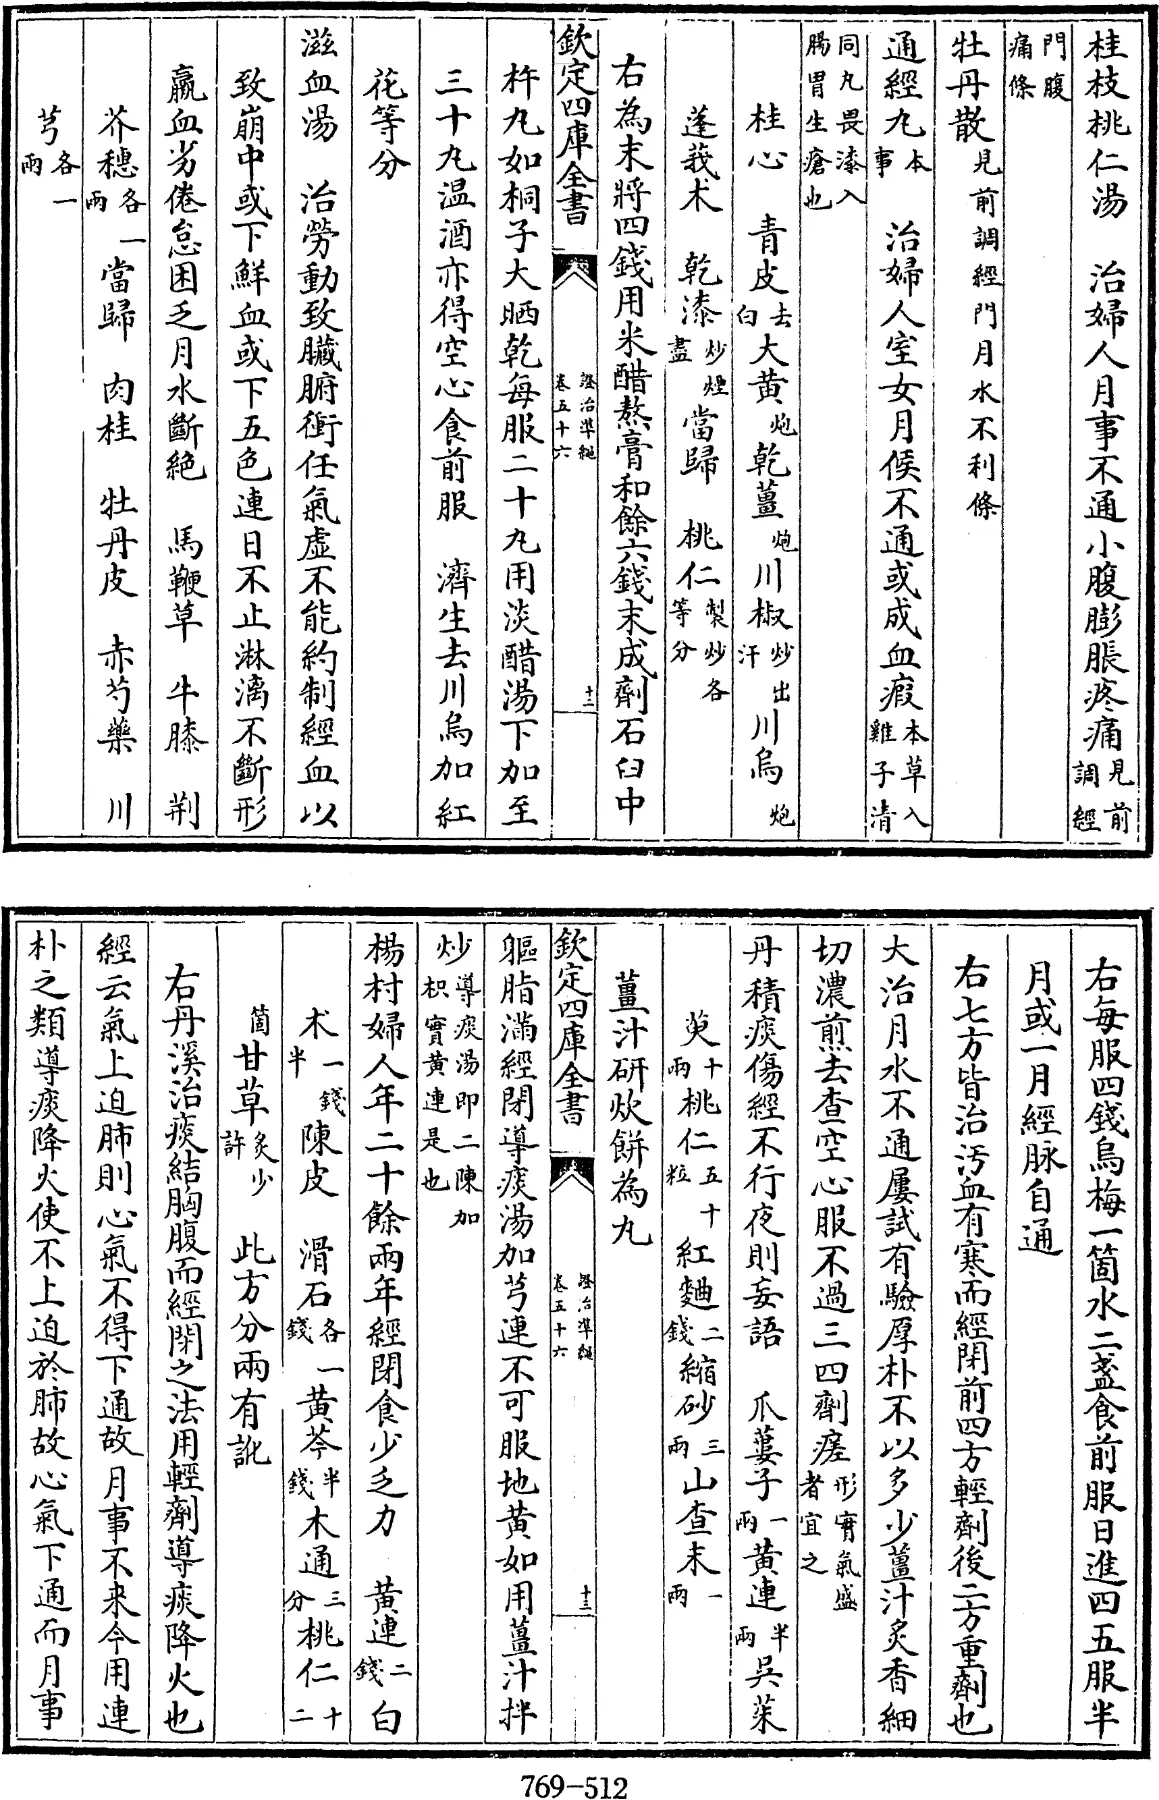 桂枝桃仁湯　治婦人月事不通小腹膨脹疼痛見前調經
門腹痛條
牡丹散見前調經門月水不利條
通經丸本事　治婦人室女月候不通或成血瘕本草入雞子清
同丸畏漆入腸胃生瘡也
桂心　青皮去白大黄炮乾薑炮川椒炒出汗川烏炮
蓬莪术　乾漆炒煙盡當歸　桃仁製炒各等分
右為末將四錢用米醋熬膏和餘六錢末成劑石臼中
欽定四庫全書　證治準繩卷五十六　十二
杵丸如桐子大晒乾每服二十丸用淡醋湯下加至
三十丸温酒亦得空心食前服　濟生去川烏加紅
花等分
滋血湯　治勞動致臟腑衝任氣虛不能約制經血以
致崩中或下鮮血或下五色連日不止淋漓不斷形
羸血劣倦怠困乏月水斷絶　馬鞭草　牛膝　荆
芥穗各一兩當歸　肉桂　牡丹皮　赤芍藥　川
芎各一兩
右每服四錢烏梅一箇水二盞食前服日進四五服半
月或一月經脉自通
右七方皆治汚血有寒而經閉前四方輕劑後二方重劑也
大治月水不通屢試有驗厚朴不以多少薑汁炙香細
切濃煎去查空心服不過三四劑瘥形實氣盛者宜之
丹積痰傷經不行夜則妄語　爪蔞子一兩黄連半兩吳茱
萸十兩桃仁五十粒紅麯二錢縮砂三兩山查末一兩
薑汁研炊餅為丸
欽定四庫全書　證治準繩卷五十六　十三
軀脂滿經閉導痰湯加芎連不可服地黄如用薑汁拌
炒導痰湯即二陳加枳實黄連是也
楊村婦人年二十餘兩年經閉食少乏力　黄連二錢白
术一錢半陳皮　滑石各一錢黄芩半錢木通三分桃仁十二
箇甘草炙少許　此方分兩有訛
右丹溪治痰結胸腹而經閉之法用輕劑導痰降火也
經云氣上迫肺則心氣不得下通故月事不来今用連
朴之類導痰降火使不上迫於肺故心氣下通而月事
769-512